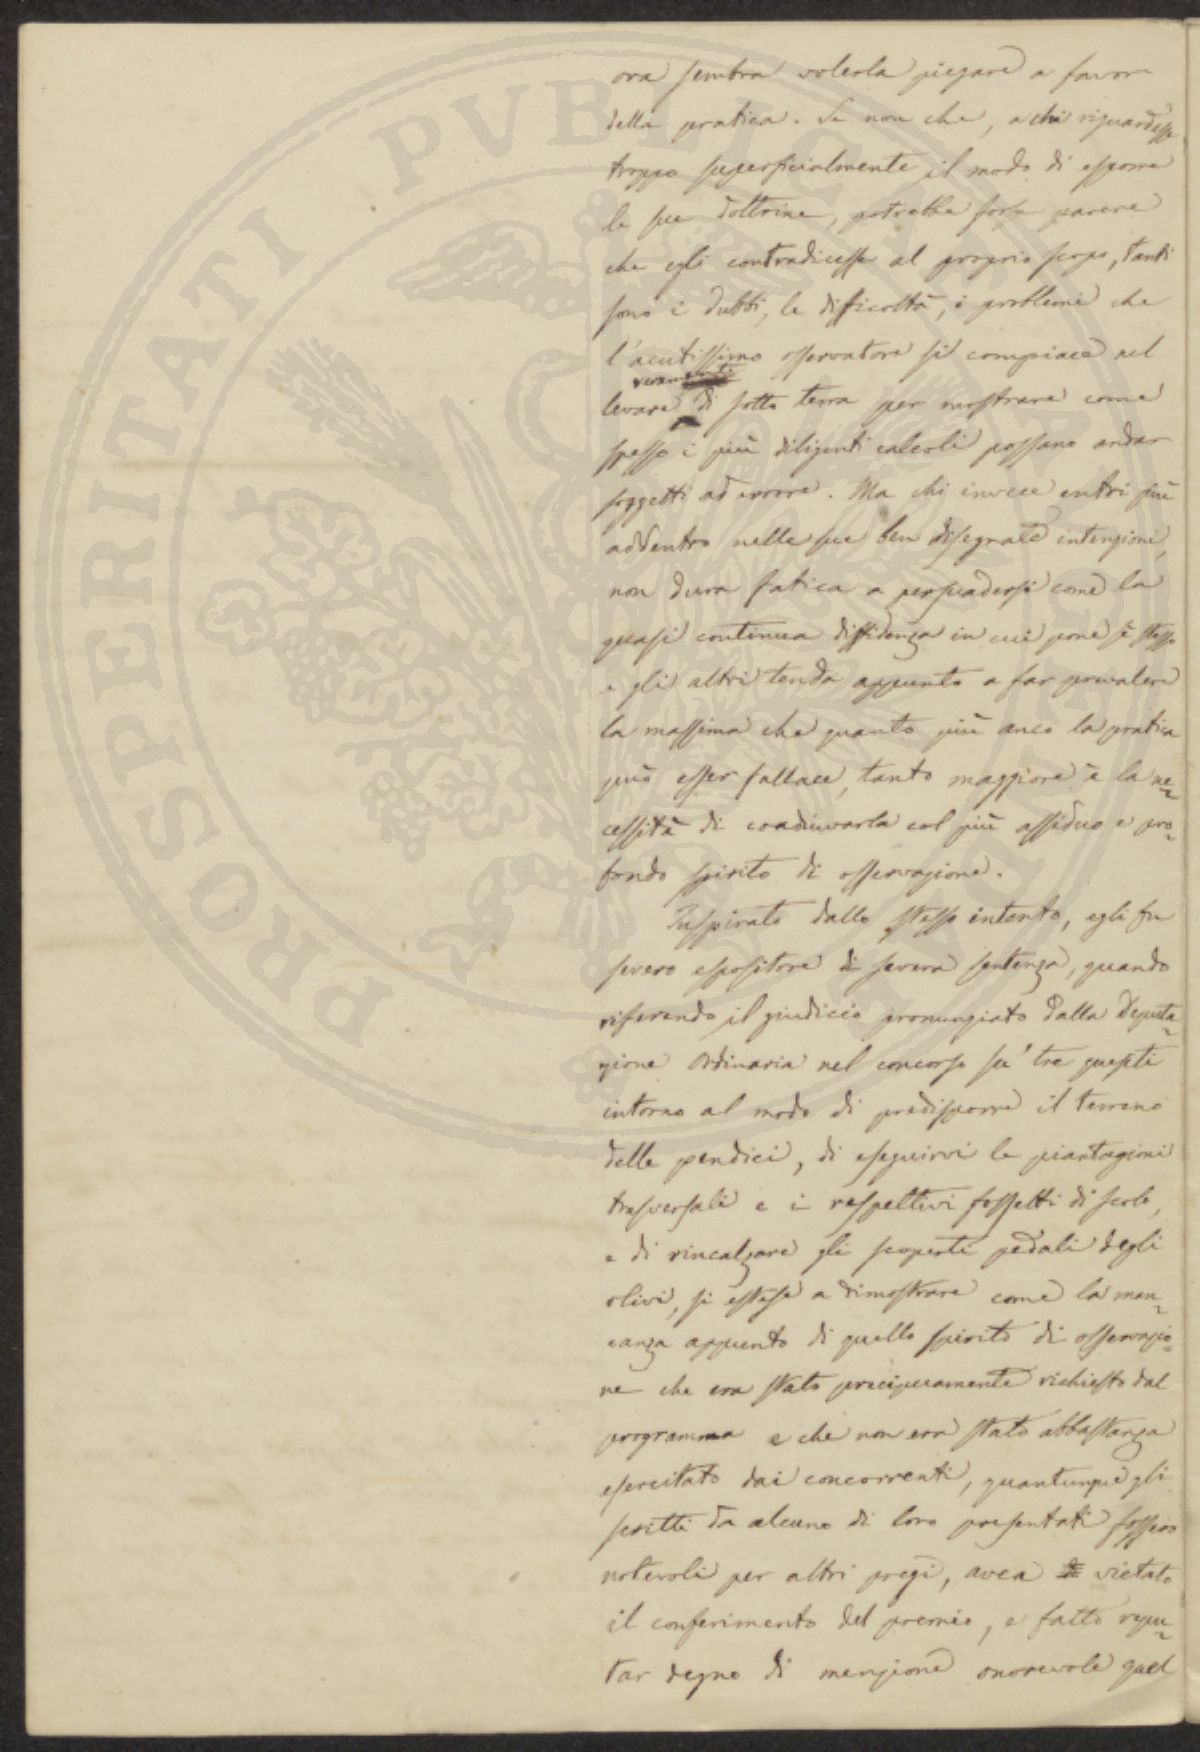 ora sembra volerla piegare a favor
della pratica. Se non che, a chi riguardasse
troppo superficialmente il modo di esporre
le sue dottrine, potrebbe forse parere
che egli contradicesse al proprio scopo, tanti
sono i dubbi, le difficoltà, i problemi che
l'acutissimo osservatore si compiace nel
levare di sotto terra per mostrare come
spesso i più diligenti calcoli possano andar
soggetti ad errore. Ma chi invece entri più
addentro nelle sue ben disegnate intenzioni,
non dura fatica a persuadersi come la
quasi continua diffidenza in cui pone sè stesso
e gli altri tenda appunto a far prevalere
la massima che quanto più anco la pratica
può esser fallace, tanto maggiore è la ne=
cessità di coadiuvarla col più assiduo e pro=
fondo spirito di osservazione.
Inspirato dallo stesso intento, egli fu
severo espositore di severa sentenza, quando
riferendo il giudicio pronunziato dalla Deputa=
zione Ordinaria nel concorso su' tre quesiti
intorno al modo di predisporre il terreno
delle pendici, di eseguirvi le piantagioni
trasversali e i respettivi fossetti di scolo,
e di rincalzare gli scoperti pedali degli
olivi, si estese a dimostrare come la man=
canza appunto di quello spirito di osservazio=
ne che era stato precipuamente richiesto dal
programma e che non era stato abbastanza
esercitato dai concorrenti, quantunque gli
scritti da alcuno di loro presentati fossero
notevoli per altri pregi, avea vietato
il conferimento del premio, e fatto repu=
tar degno di menzione onorevole quel
PROSPERITATI PUBLICAE